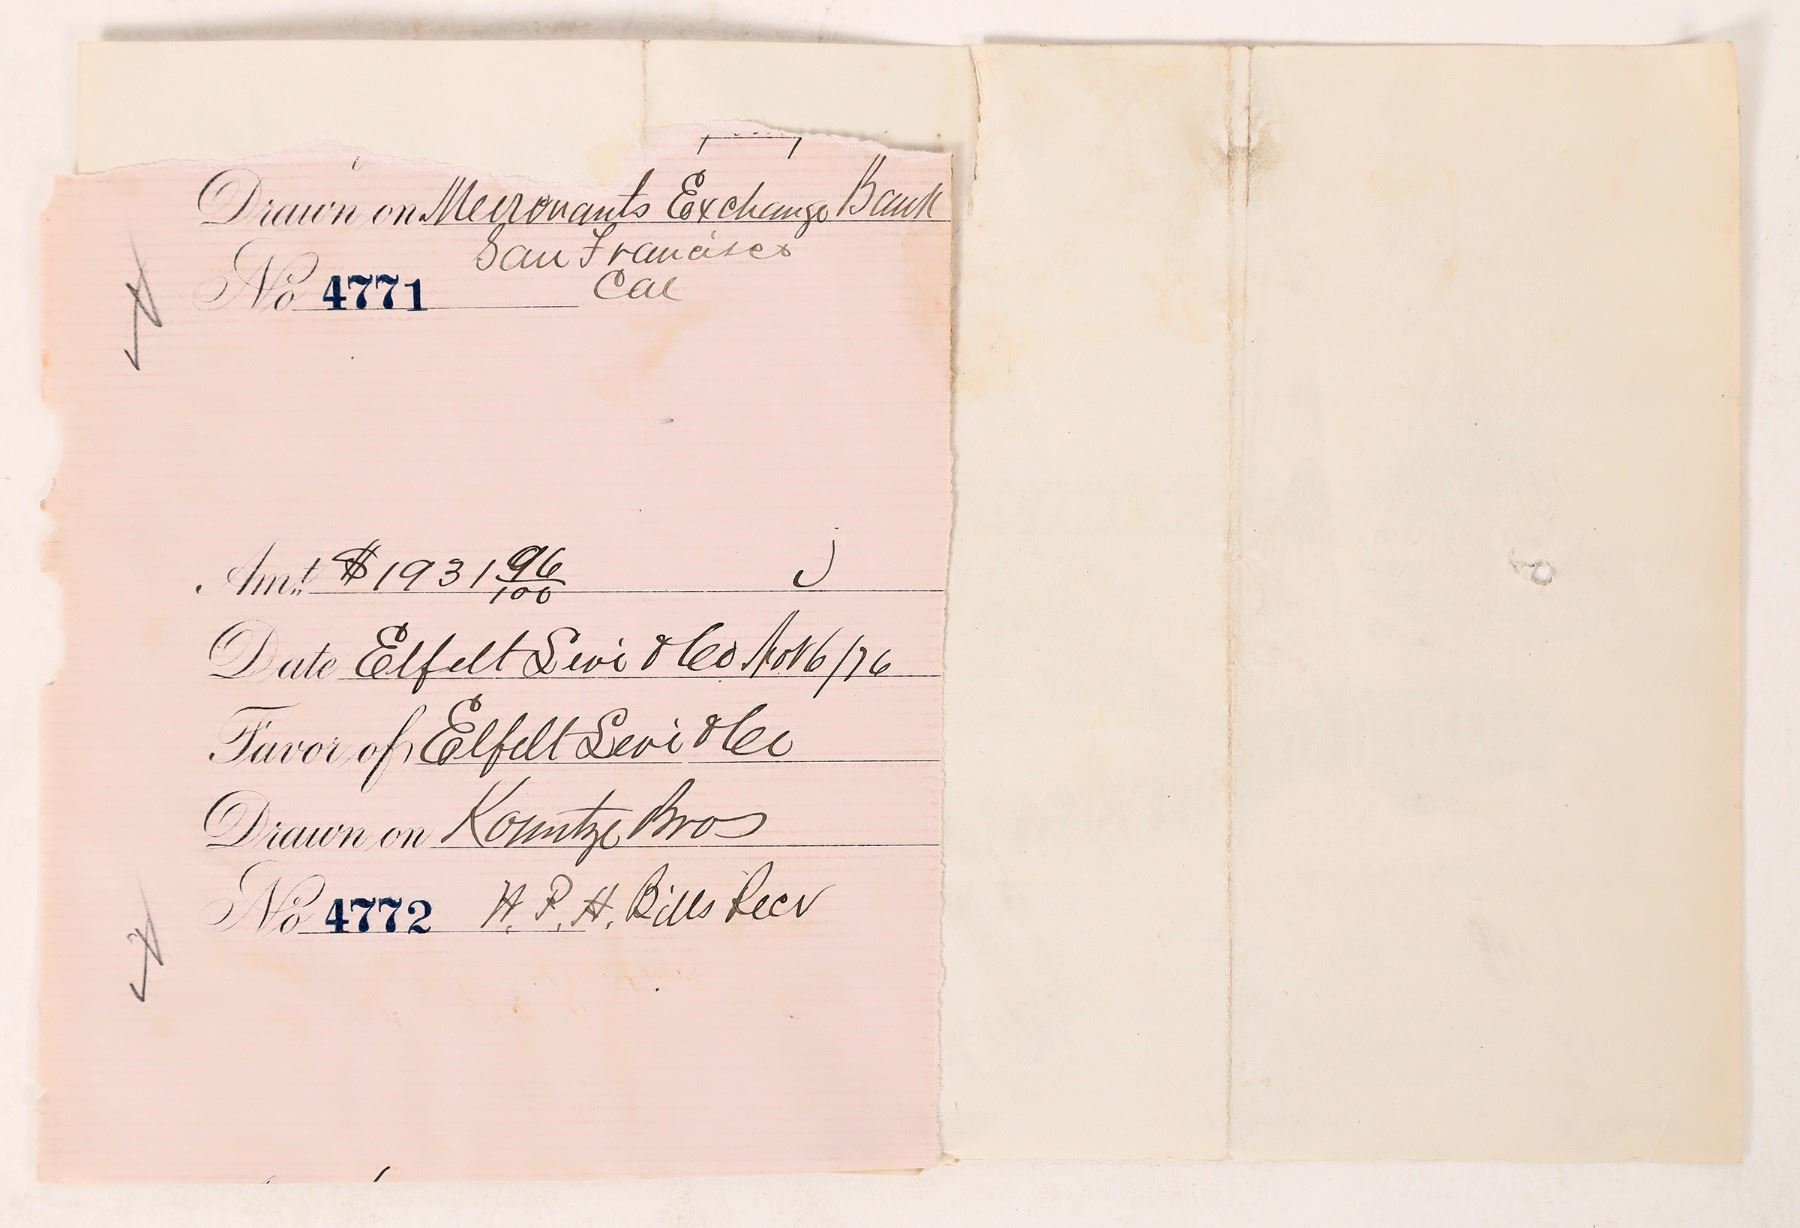 Drawn on Merchants Exchange Bank
San Francisco
No 4771 Cal
Amt. $1931 96/100
Date Elfelt Levi & Co Nov 6/76
Favor of Elfelt Levi & Co
Drawn on Kountze Bros
No 4772 H. P. H. Bills Recv